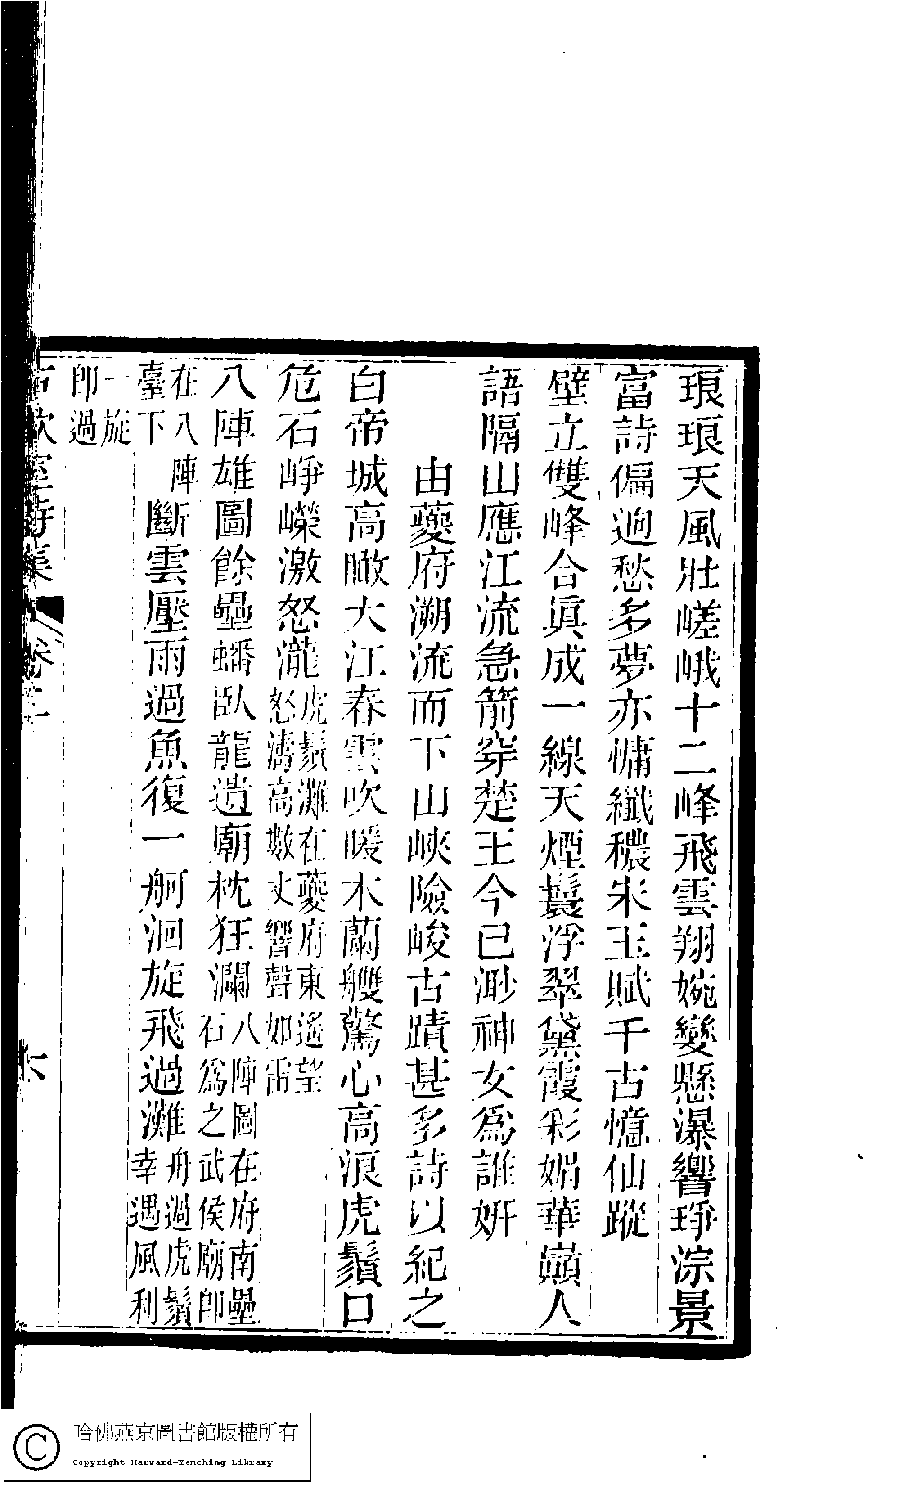 琅琅天風壯嵯峨十二峰飛雲翔婉孌懸瀑響琤淙景
富詩偏逈愁多夢亦慵纖穠宋玉賦千古憶仙蹤
壁立雙峰合眞成一線天煙鬟浮翠黛霞彩媚華巔人
語隔山應江流急箭穿楚王今已渺神女爲誰姸
由夔府溯流而下山峽險峻古蹟甚多詩以紀之
白帝城高瞰大江春雲吹暖木蘭艭驚心高浪虎鬚口
危石崢嶸激怒瀧虎鬚灘在夔府東遙望怒濤高數丈響聲如雷
八陣雄圖餘壘蟠臥龍遺廟枕狂瀾八陣圖在府南壘石爲之武侯廟卽
在八陣臺下斷雲壓雨過魚復一舸洄旋飛過灘舟過虎鬚幸遇風利
一旋卽過
古歡室詩集 卷二
哈佛燕京圖書館版權所有
Copyright Harvard-Yenching Library